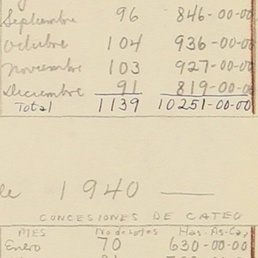 Septiembre 96 846-00-00
Octubre 104 936-00-00
Noviembre 103 927-00-00
Diciembre 91 819-00-00
Total 1139 10251-00-00
de 1940 —
CONCESIONES DE CATEO
MES No de lotes Has. As. Ca.
Enero 70 630-00-00